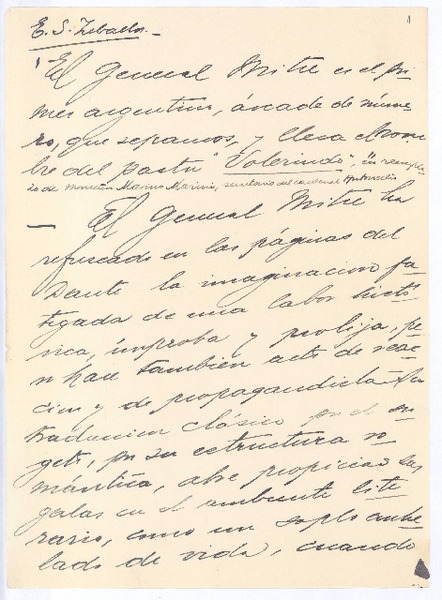 E. S. Zeballos.—
"El General Mitre es el pri-
mer argentino, árcade de núme-
ro, que sepamos, y lleva el nom-
bre del pastor "Volerindo", en reempla-
zo de monseñor Marino Marini, secretario del cardenal Antonelli
— El General Mitre ha
refrescado en las páginas del
Dante la imaginacion fa-
tigada de una labor histó-
rica, ímproba y prolija, pe-
ro hace también acto de reac-
cion y de propagandista. Su
traduccion clásica por el su-
jeto, por su estructura ro-
mántica, abre propicias las
galas en el ambiente lite-
rario, como un soplo anhe-
lado de vida, cuando